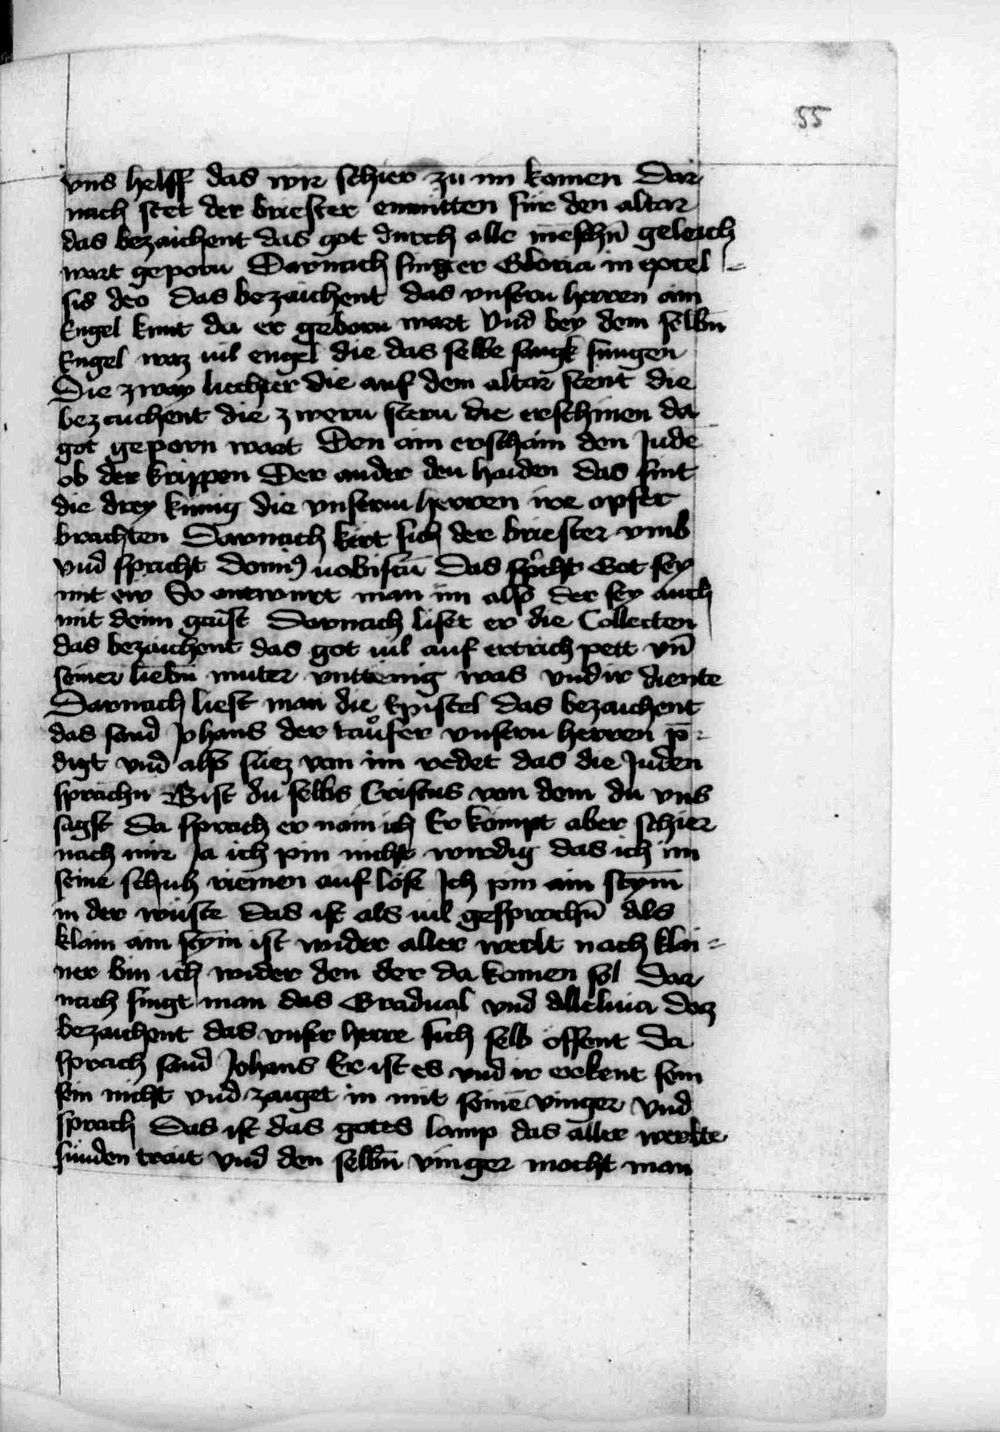 55
vns helff das wir schier zu im komen Dar
nach stet der briester enmitten für den altar
das bezaichent das got durch alle meschn̄ geleich
wart geporn Darnach singt er Gloria in excel-
sis deo das bezaichent das vnsern herren ain
Engel kunt da er geborn wart Vnd bey dem selbn̄
Engel waz uil engel die das selbe sangk sungen
Die zway liechter die auf dem altar stent die
bezaichent die zwen stern die erschinen da
got geporn wart Den ain erschain den Jude
ob der krippen Der ander den haiden das sint
die drey kunig die vnserm herren ire opfer
brachten Darnach kert sich der briester vmb
vnd spricht domin9 uobiscū Das spͥcht Got sey
mit ew So antwurt man im also der sey auch
mit deim gaist Darnach list er die Collecten
das bezaichent das got uil auf ertrich pett vn̄
seiner liebn̄ muter vnttenig was vnd ir diente
Darnach liest man die Epistel das bezaichent
das sand Johans der taufer vnsern herren p̄-
digt vnd also suez von im redet das die Juden
sprachn Bist du selbs Cristus von dem du vns
sagst da sprach er nain ich Er kompt aber schier
nach mir Ja ich pin nicht wirdig das ich im
seine schuh riemen auf löse Ich pin ain stym̄
in der wüste Das ist als uil gesprochn̄ Als
klain ain stym ist wider aller werlt noch klai-
ner bin ich wider den der da komen sol Dar
nach singt man das Gradual vnd Alleluia daz
bezaichent das vnser herre sich selb offent Da
sprach sand Johans Er ist es vnd ir erkent sein
sein nicht vnd zaiget in mit seinē vinger Vnd
sprach Das ist das gotes lamp das aller werlte
sünden trait vnd den selbn̄ vinger mocht man